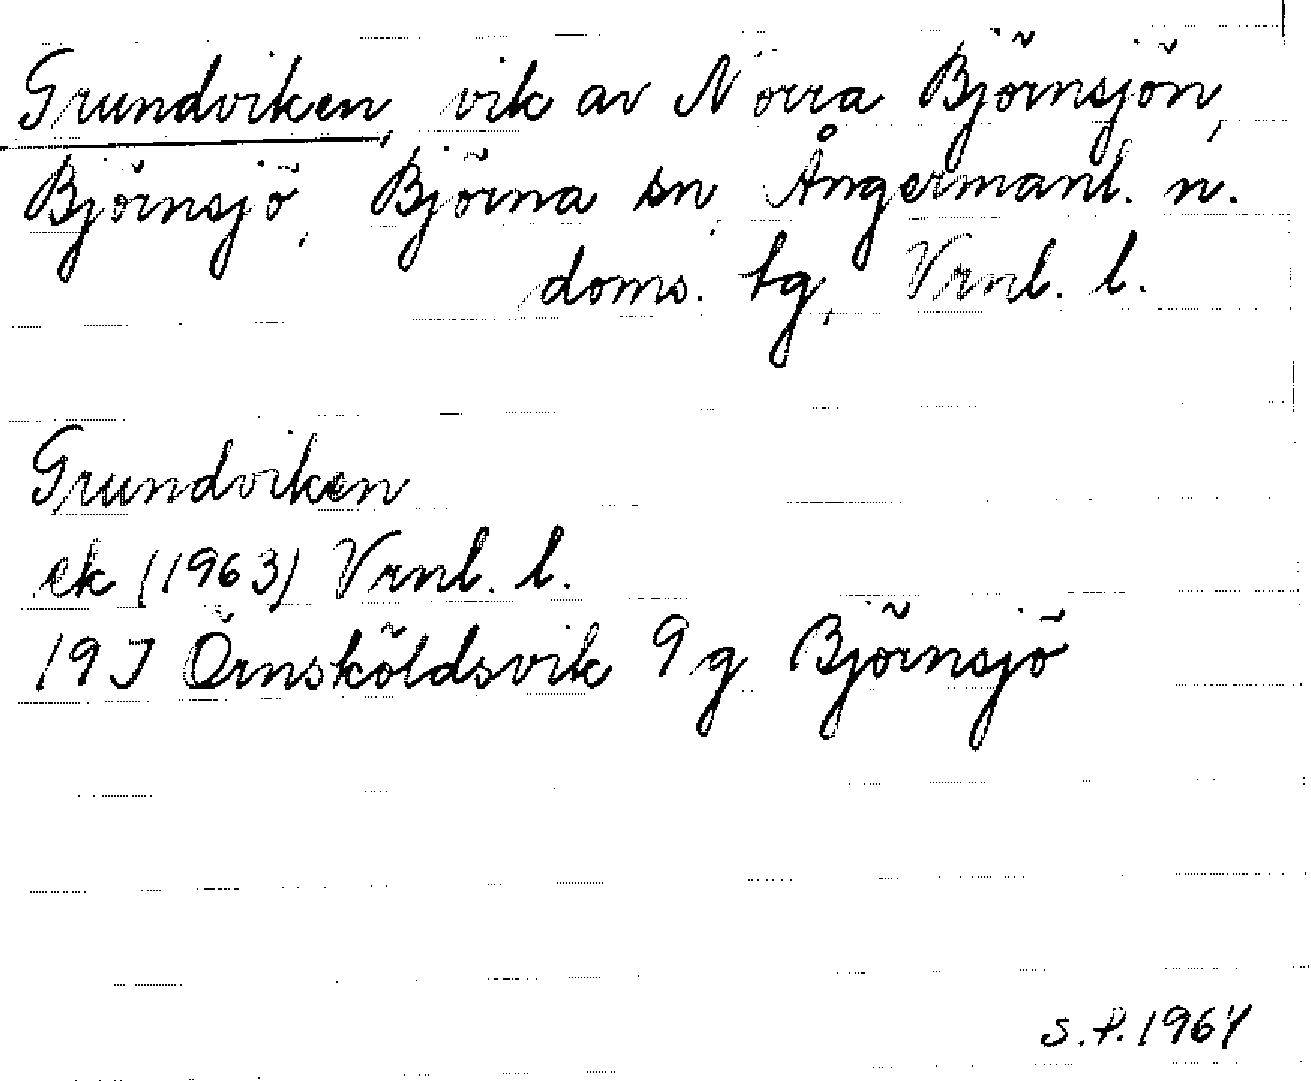 Grundviken, vik av Norra Björnsjön,
Björnsjö, Björna sn, Ångermanl. n.
doms. tg, Vrnl. l.
Grundviken
ek (1963) Vrnl. l.
19J Örnsköldsvik 9g Björnsjö
S.P. 1964